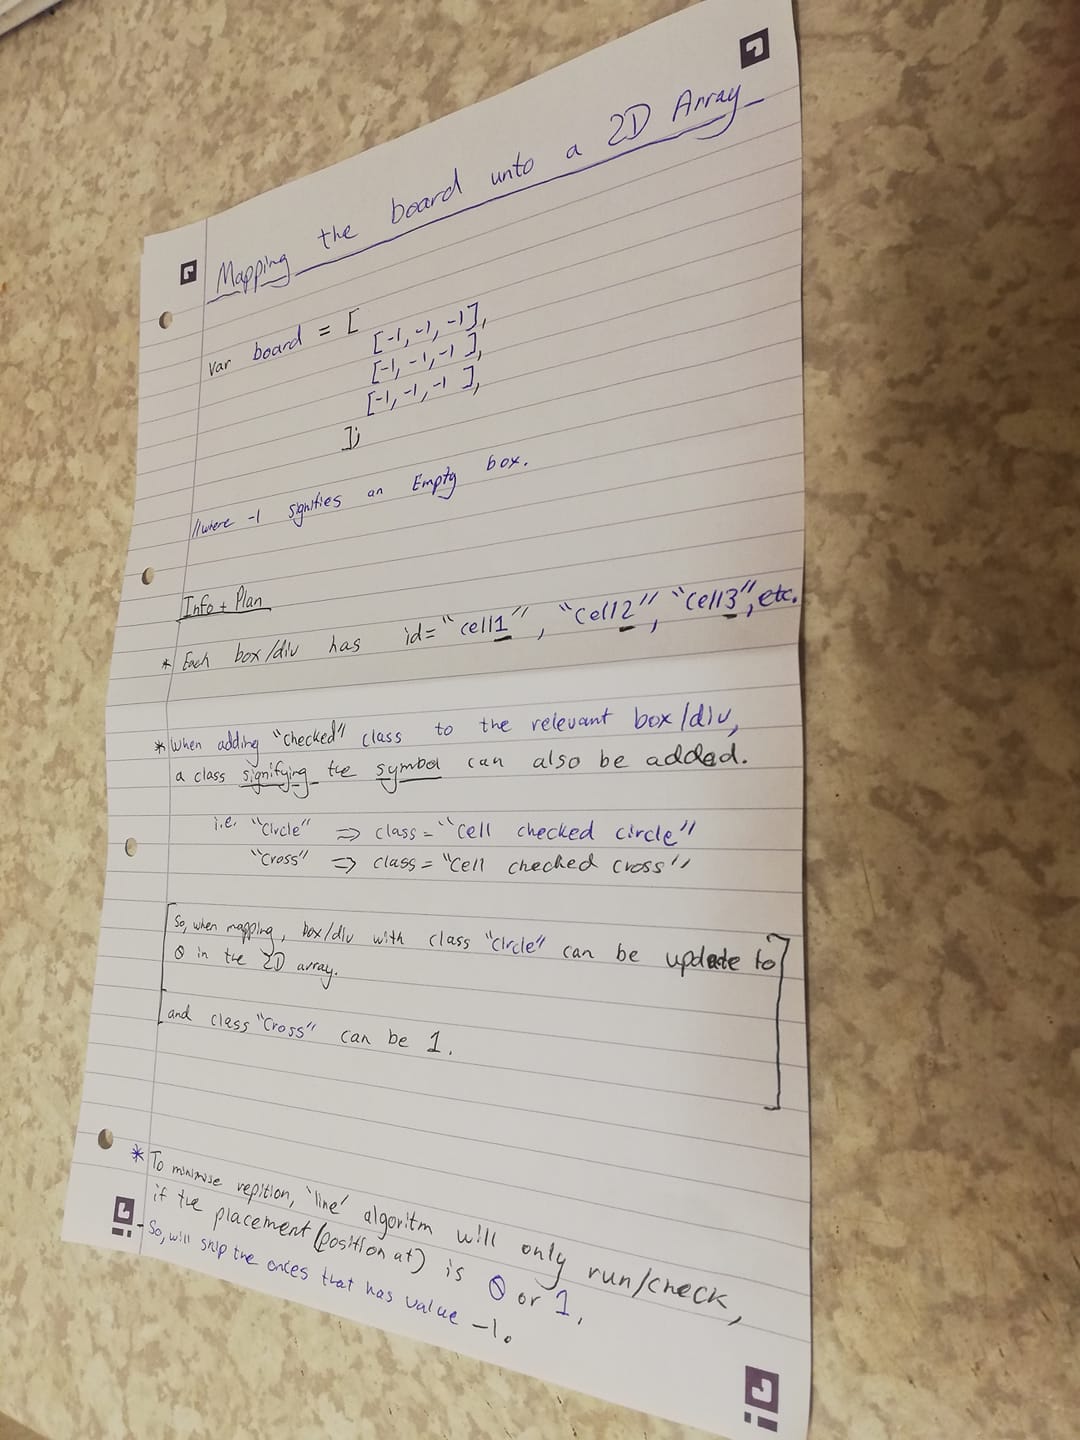 Mapping the board unto a 2D Array
var board = [
[-1, -1, -1],
[-1, -1, -1],
[-1, -1, -1],
];
//where -1 signifies an Empty box.
Info + Plan
* Each box/div has id="cell1", "cell2", "cell3", etc.
* When adding "checked" class to the relevant box/div,
a class signifying the symbol can also be added.
i.e. "Circle" => class = "cell checked circle"
"Cross" => class = "Cell checked cross"
So, when mapping, box/div with class "circle" can be update to
0 in the 2D array.
and class "Cross" can be 1.
* To minimise repition, 'line' algoritm will only run/check,
if the placement (position at) is 0 or 1.
- So, will skip the onces that has value -1.